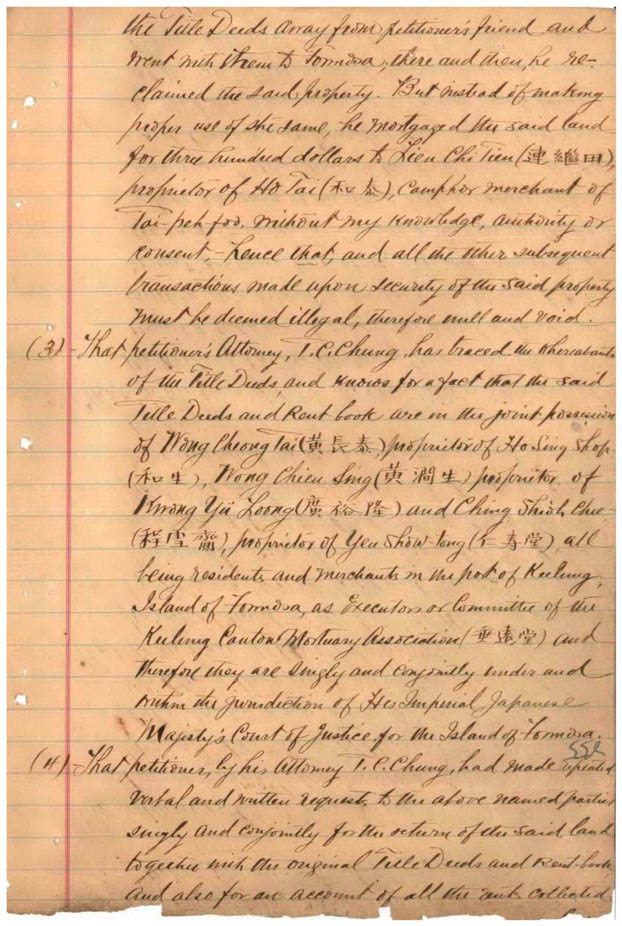 the Title Deeds away from petitioner's friend and
went with them to Formosa, there and then, he re-
claimed the said property. But instead of making
proper use of the same, he mortgaged the said land
for three hundred dollars to Lien Chi Tien (連繼田),
proprietor of Ho Tai (和泰), Camphor merchant of
Tai-peh foo, without my knowledge, authority or
consent, - hence that, and all the other subsequent
transactions made upon security of the said property
must be deemed illegal, therefore null and void.
(3) - That petitioner's Attorney, T. C. Chung, has traced the whereabouts
of the Title Deeds, and knows for a fact that the said
Title Deeds and Rent book are in the joint possession
of Wong Cheong Tai (黃長泰), proprietor of Ho Sing Shop
(和生), Wong Chien Sing (黃澗生) proprietor of
Kwong Yü Loong (廣裕隆) and Ching Shioh Chie-
(程雪齋), proprietor of Yen Show-tong (仁壽堂), all
being residents and merchants in the port of Keelung,
Island of Formosa, as Executors or Committee of the
Keelung Canton Mortuary Association (垂遠堂) and
therefore they are singly and conjointly under and
within the jurisdiction of His Imperial Japanese
Majesty's Court of Justice for the Island of Formosa.
(4) - That petitioner, by his Attorney T. C. Chung, had made repeated
verbal and written requests to the above named parties
singly and conjointly for the return of the said land
together with the original Title Deeds and Rent-book
and also for an account of all the rents collected